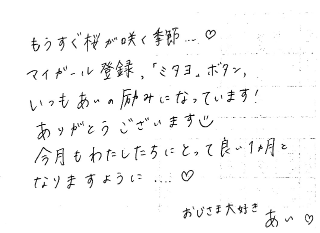 もうすぐ桜が咲く季節…♡
マイガール登録,「ミタヨ」ボタン,
いつもあいの励みになっています!
ありがとうございます☺
今月もわたしたちにとって良い1ヵ月と
なりますように….♡
おじさま大好き
あい♡